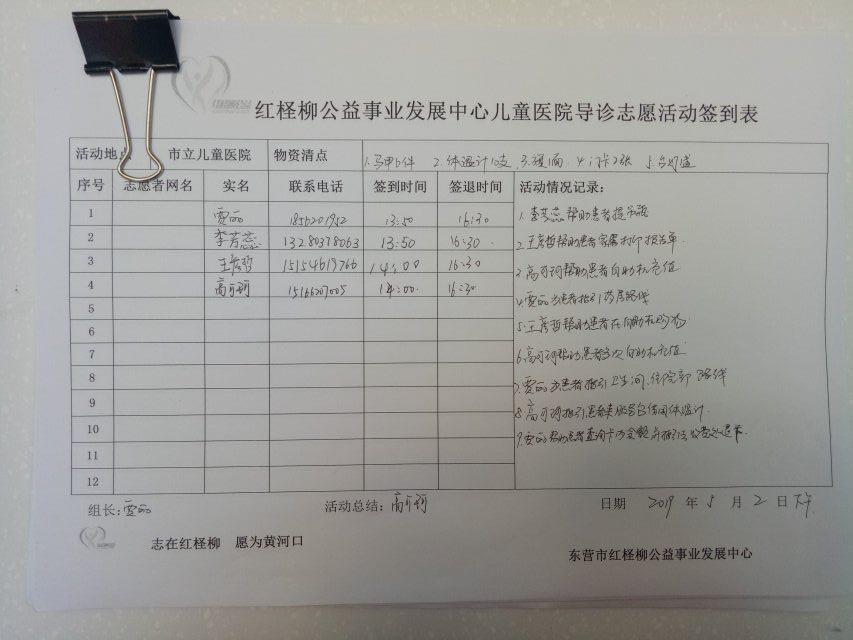 红柽柳公益事业发展中心儿童医院导诊志愿活动签到表
活动地 市立儿童医院 物资清点 1.马甲6件 2.体温计10支 3.
序号 志愿者网名 实名 联系电话 签到时间 签退时间 活动情况记录:
1 贾丽 13:50 16:30
2 李芳蕊 13280378063 13:50 16:30
3 王彦哲 15154619766 14:00 16:30
4 高可珂 15166207005 14:00 16:30
5
6
7
8
9
10
11
12
1.李芳蕊帮助患者提
2.王彦哲帮助患者家属打印报告单.
3.高可珂帮助患者自助机充值
4.贾丽为患者指引药房路线
5.王彦哲帮助患者在自助机
6.高可珂帮助患者多次自助机充值
7.贾丽为患者指引卫生间、住院部路线
8.高可珂指引患者来服务台借用体温计.
9.贾丽帮助患者查询卡内余额并指引去收费处退卡.
组长:贾丽 活动总结:高可珂 日期 2019 年 5 月 2 日下午
志在红柽柳 愿为黄河口
东营市红柽柳公益事业发展中心